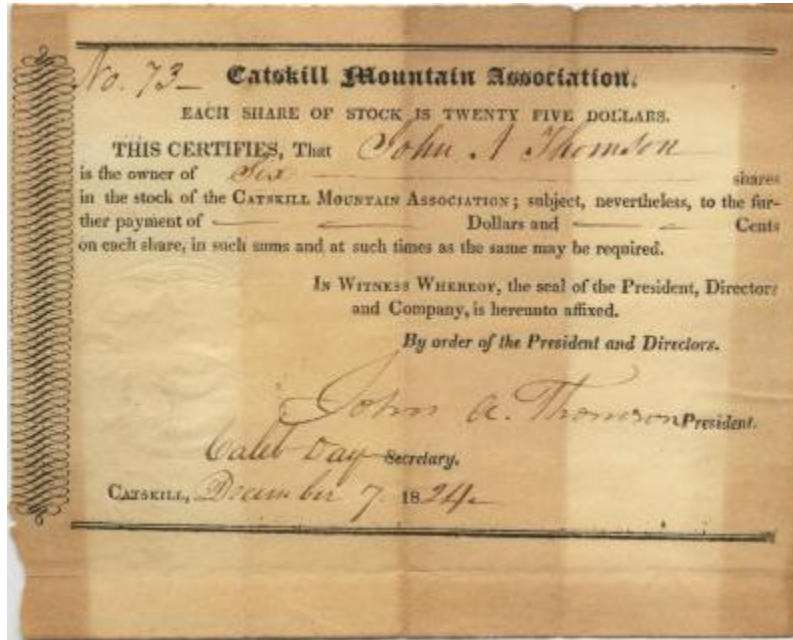 No. 73 Catskill Mountain Association.
EACH SHARE OF STOCK IS TWENTY FIVE DOLLARS.
THIS CERTIFIES, That John A Thomson
is the owner of Six shares
in the stock of the CATSKILL MOUNTAIN ASSOCIATION; subject, nevertheless, to the fur-
ther payment of — — Dollars and — — Cents
on each share, in such sums and at such times as the same may be required.
IN WITNESS WHEREOF, the seal of the President, Directors
and Company, is hereunto affixed.
By order of the President and Directors.
John A. Thomson President.
Caleb Day Secretary.
CATSKILL, December 7 1824